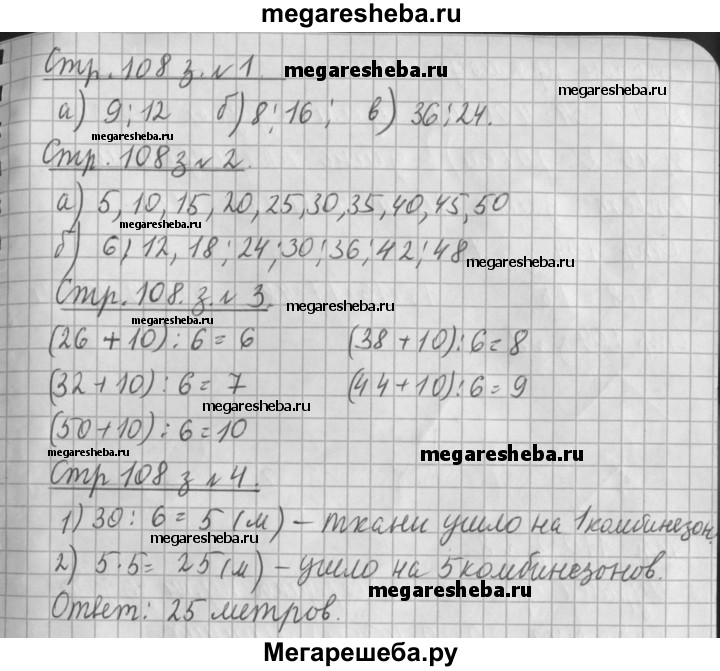 megaresheba.ru
Стр. 108 з. № 1. megaresheba.ru
а) 9; 12 б) 8; 16; в) 36; 24. megaresheba.ru
megaresheba.ru
Стр. 108 з № 2.
а) 5, 10, 15, 20, 25, 30, 35, 40, 45, 50
megaresheba.ru
б) 6, 12, 18; 24; 30; 36; 42; 48
megaresheba.ru
Стр. 108. з. № 3. megaresheba.ru
megaresheba.ru
(26 + 10) : 6 = 6 (38 + 10) : 6 = 8
(32 + 10) : 6 = 7 (44 + 10) : 6 = 9
megaresheba.ru
(50 + 10) : 6 = 10
megaresheba.ru megaresheba.ru
Стр 108 з № 4.
1) 30 : 6 = 5 (м) – ткани ушло на 1 комбинезон.
megaresheba.ru
2) 5 · 5 = 25 (м) – ушло на 5 комбинезонов.
megaresheba.ru
Ответ: 25 метров.
Мегарешеба.ру